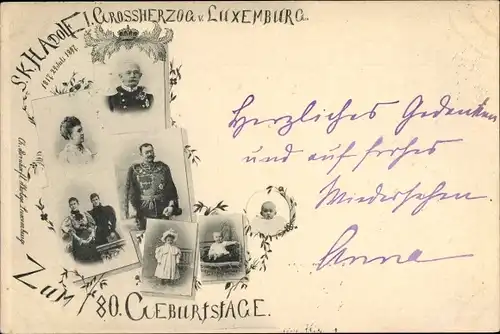 S.K.H. ADOLF I. GROSSHERZOG v. LUXEMBURG.
1817. 24 Juli 1897.
Herzliches Gedenken
und auf frohes
Wiedersehen.
Anna
ZUM 80. GEBURTSTAGE.